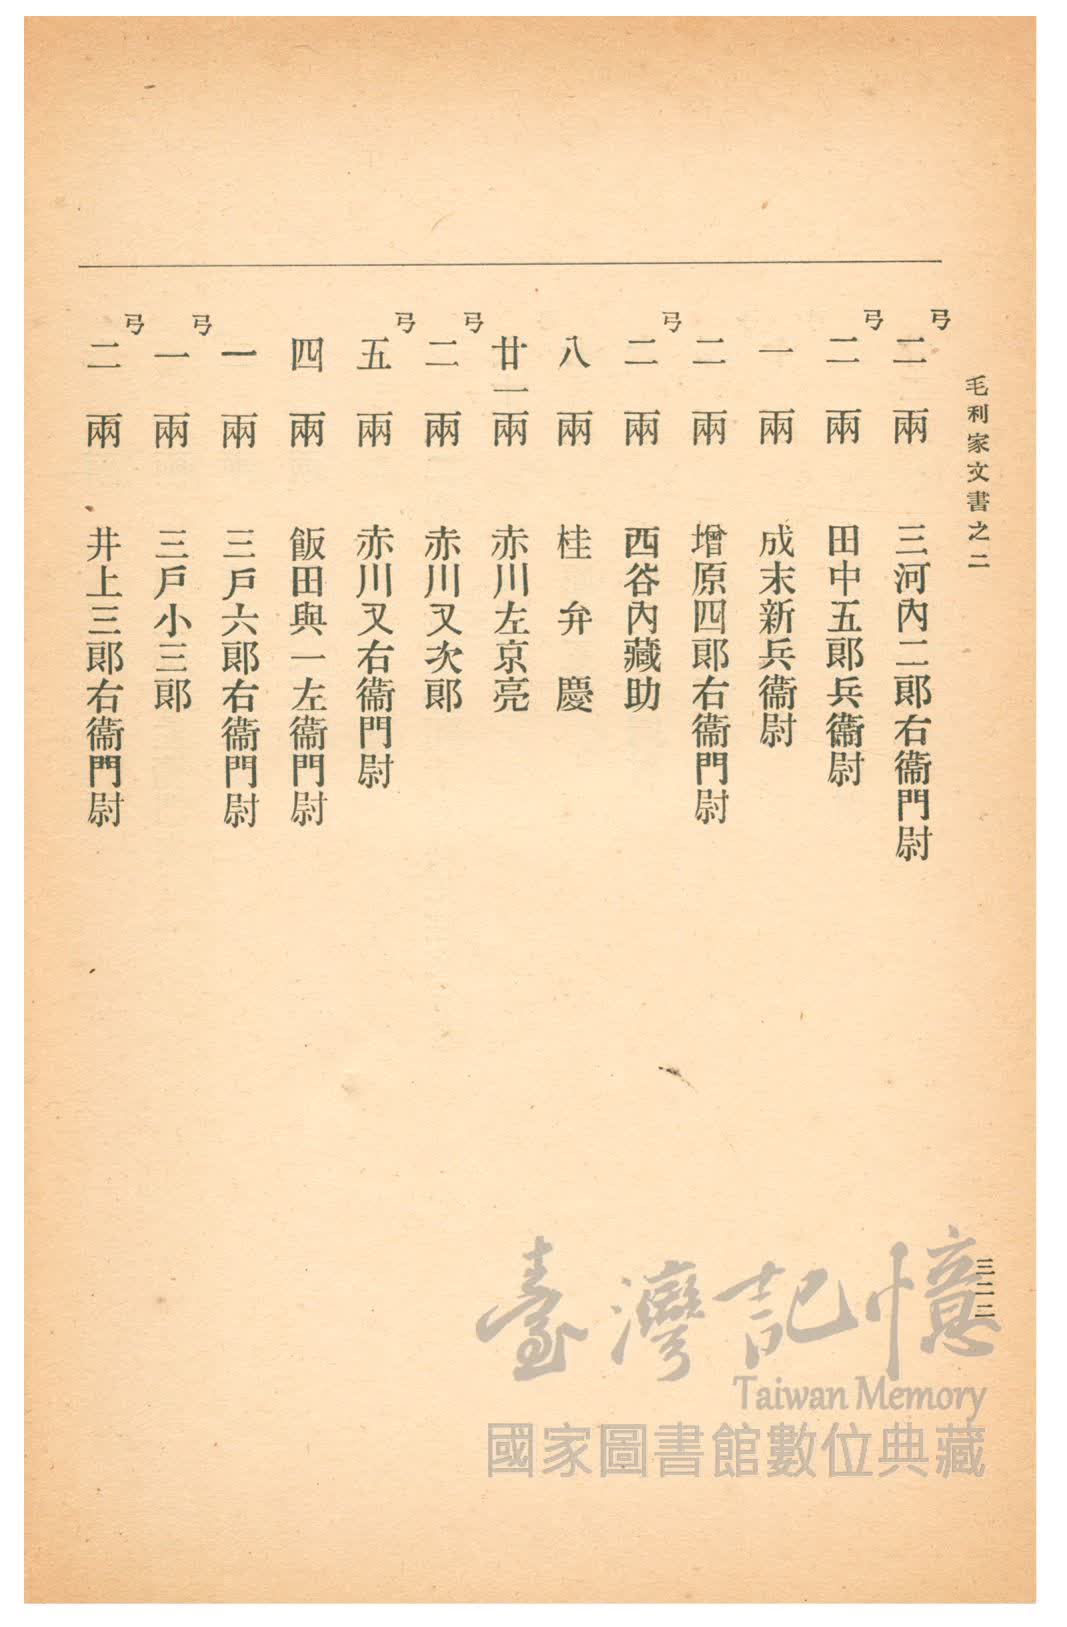 毛利家文書之二
弓二兩 三河內二郎右衞門尉
弓二兩 田中五郎兵衞尉
一兩 成末新兵衞尉
二兩 增原四郎右衞門尉
弓二兩 西谷內藏助
八兩 桂弁慶
廿一兩 赤川左京亮
弓二兩 赤川又次郎
弓五兩 赤川又右衞門尉
四兩 飯田與一左衞門尉
一兩 三戶六郎右衞門尉
弓一兩 三戶小三郎
弓二兩 井上三郎右衞門尉
三二二
臺灣記憶
Taiwan Memory
國家圖書館數位典藏